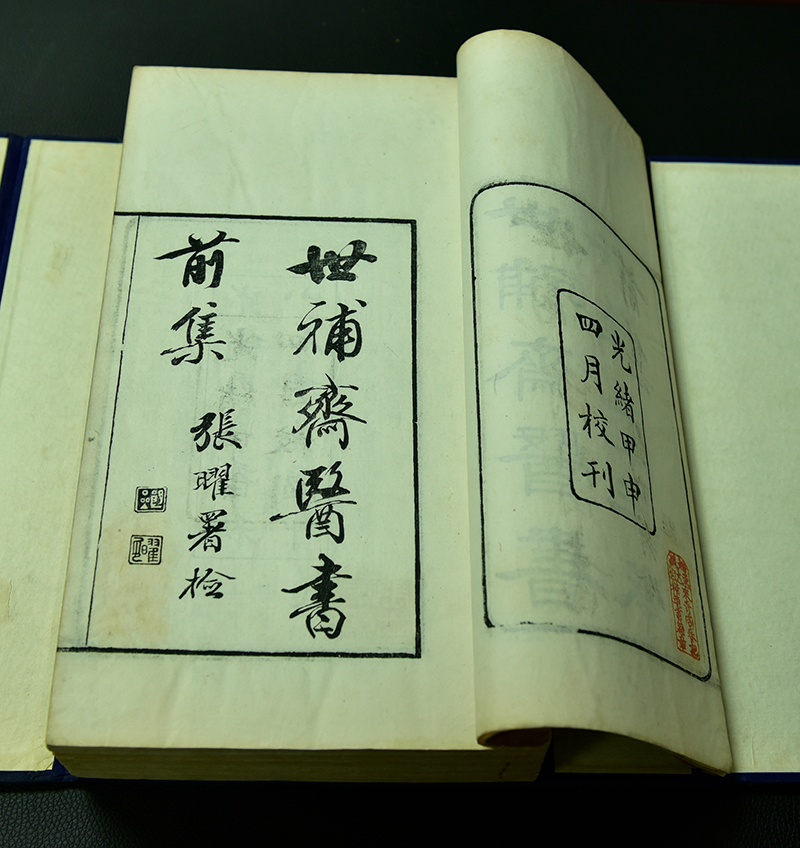 光緒甲申
四月校刊
世補齋醫書
前集
張曜署檢